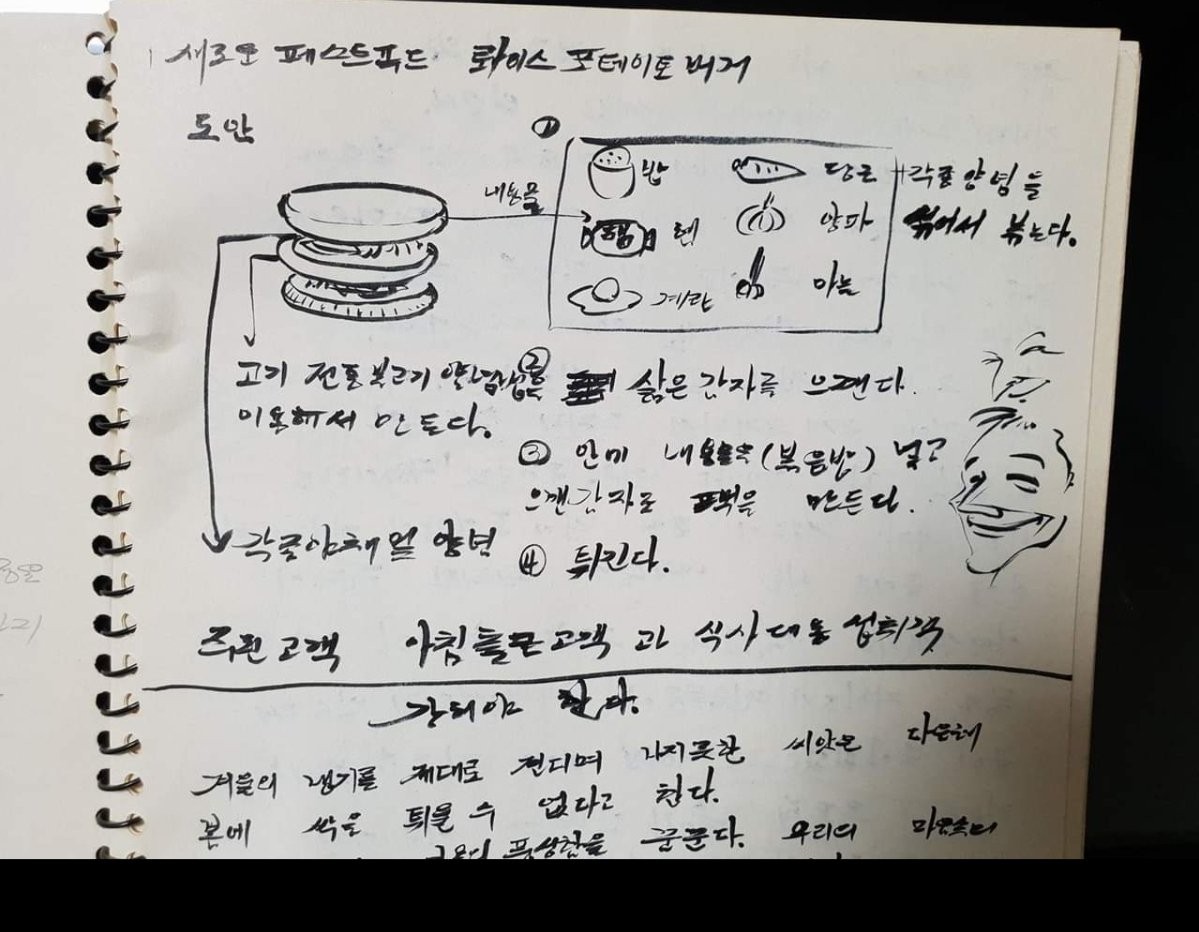 새로운 패스트푸드 롸이스 포테이토 버거
도안
①
내용물
밥 당근
햄 햄 양파
계란 마늘
+각종양념을
섞어서 볶는다.
고기 전통불고기 양념법을
이용해서 만든다.
각종야채 및 양념
② 삶은 감자를 으깬다.
③ 안에 내용물(볶음밥) 넣고
으깬감자로 떡을 만든다.
④ 튀긴다.
주된고객 아침굶은고객 과 식사대용 섭취객
강해야 한다.
겨울의 냉기를 제대로 견디며 나지못한 씨앗은 다음해
봄에 싹을 틔울 수 없다고 한다.
꿈꾼다. 우리의 마음속의